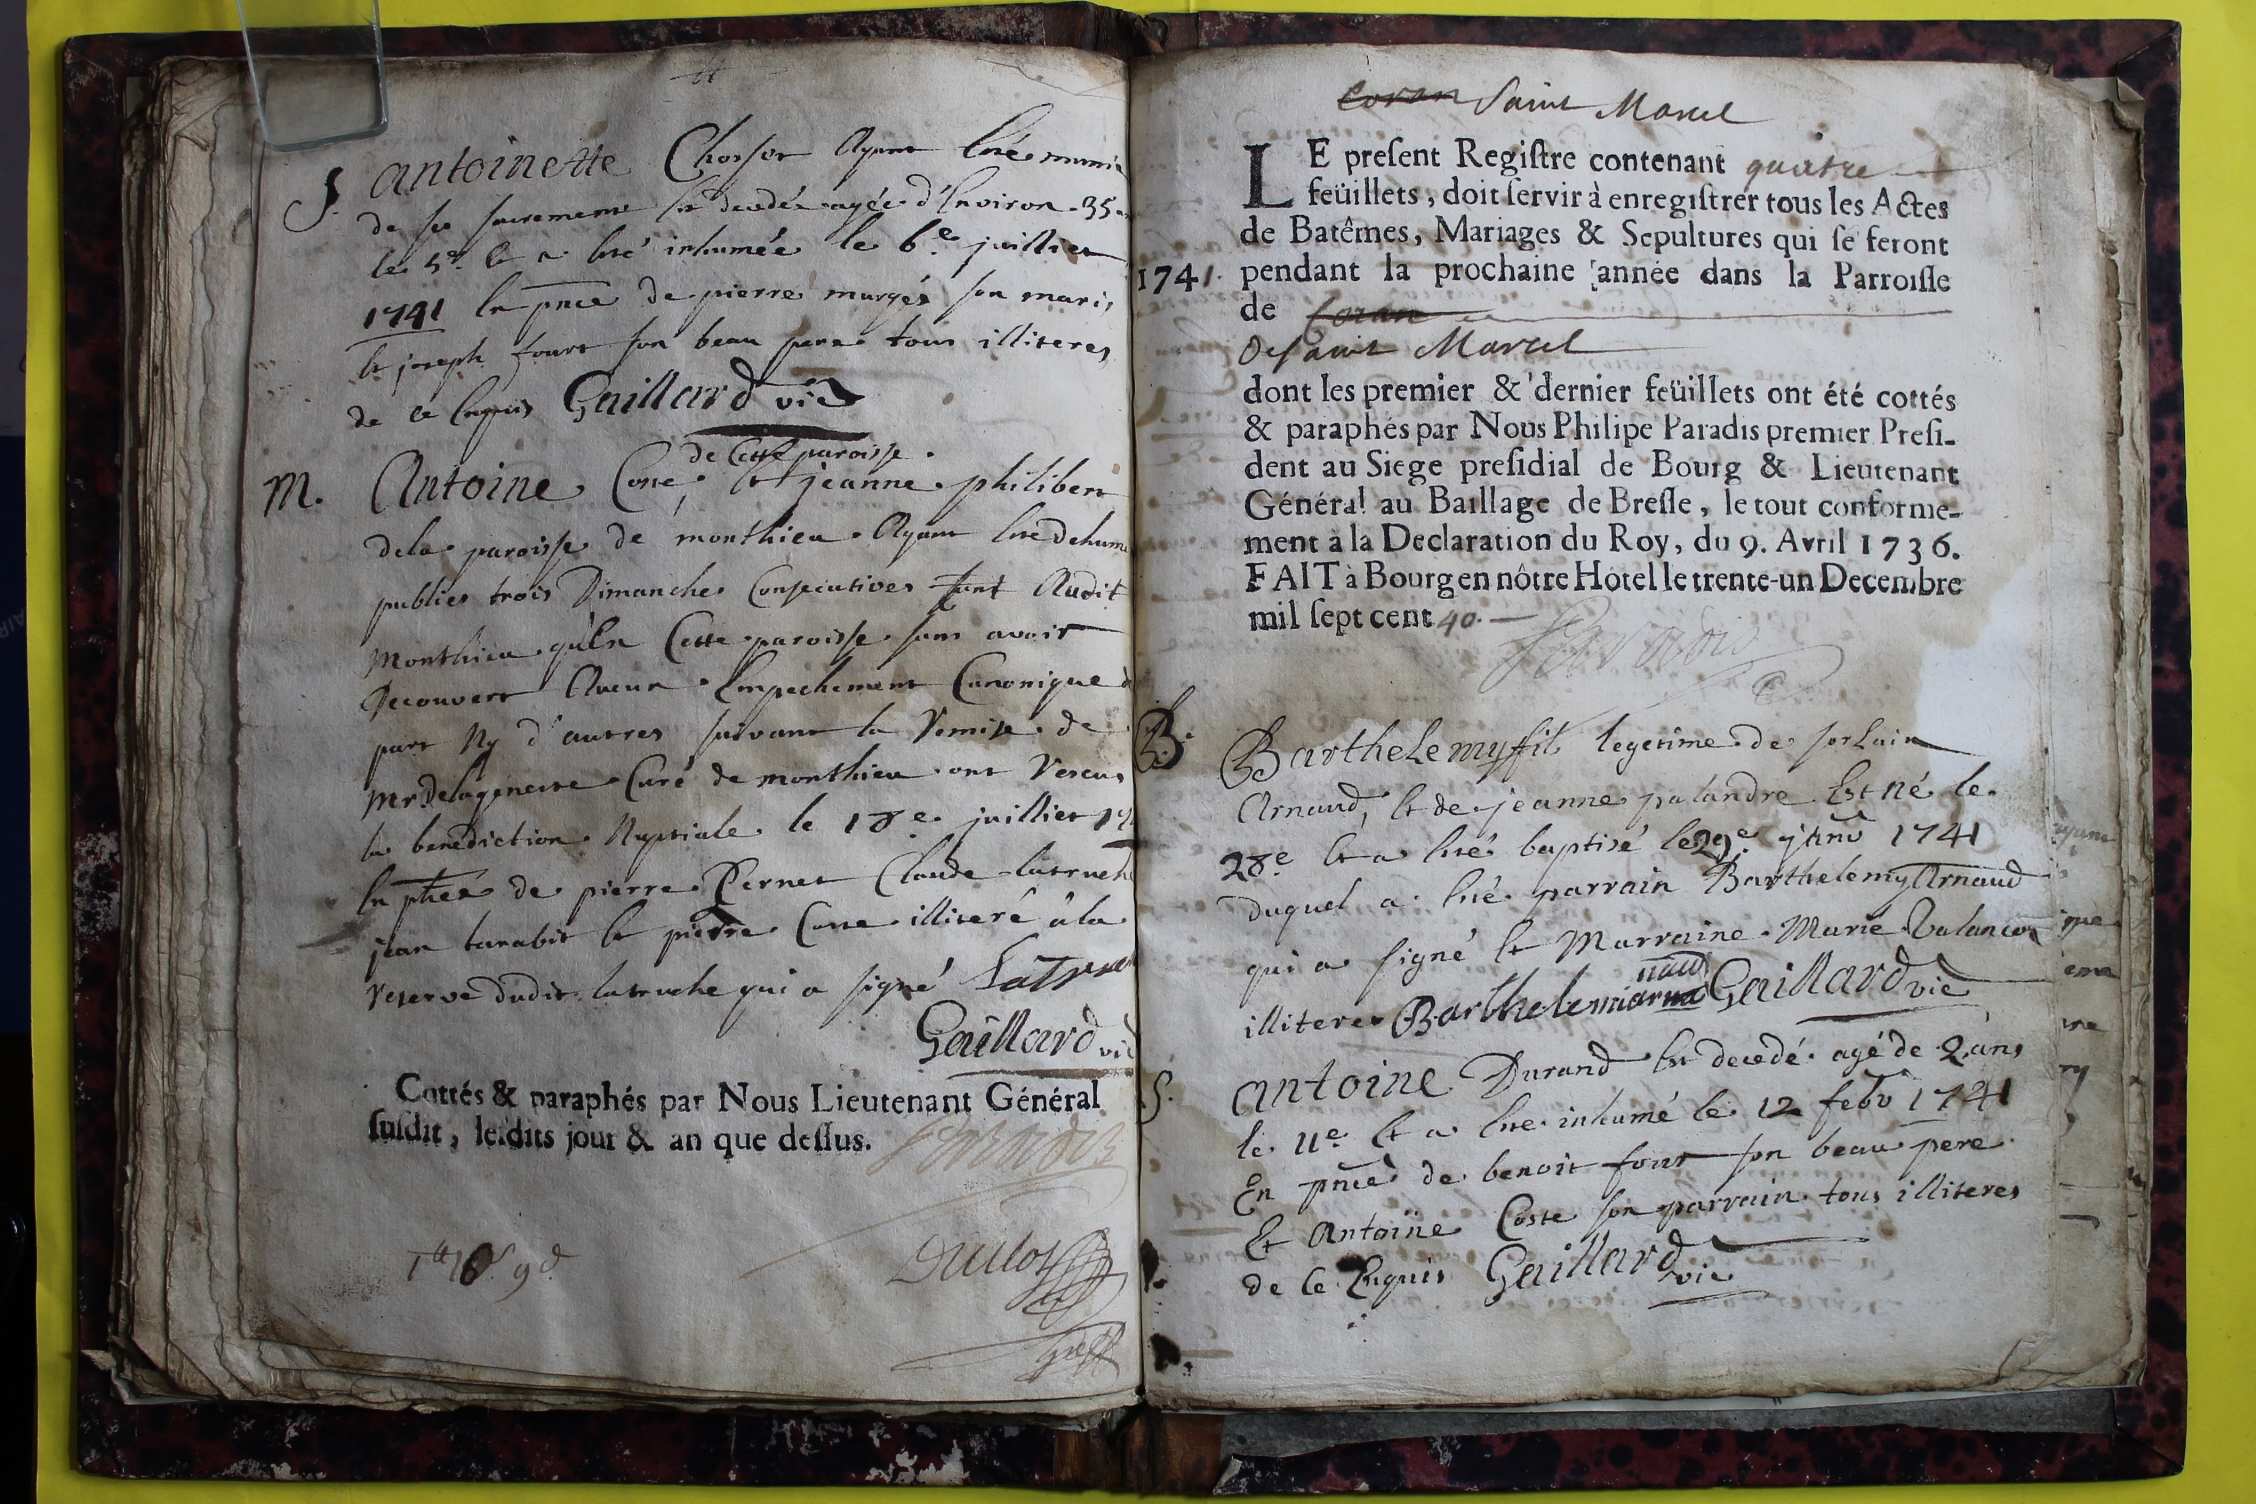 S. antoinette Chorsor Ayant Eté munie
de ses sacrements Est decedée agée d'Environ 35
le 5e. Et a Eté inhumée le 6e. juillier
1741 En pnce de pierre murgés son maris
Et joseph fourt son beau pere tous illiteres
de ce Enquis Gaillard vic
de Cette paroisse.
M. Antoine Coste, Et jeanne philibert
dela paroisse de monthieu Ayant
publies trois Dimanches Consecutives tant Audit
Monthieu qu'En Cette paroisse sans avoir
Decouvert Aucun Empechement Canonique
part Ny d'autres suivant la Remise de
Mr Delagenette Curé de monthieu ont Receus
la benediction Nuptiale le 18e. juillier
En pñce de pierre Pernet Claude latruche
jean tarabit Et pierre Coste illiteré à la
reserve dudit latruche qui a signé Latruche
Gaillard vic
Cottés & paraphés par Nous Lieutenant Général
susdit, lesdits jour & an que dessus.
Paradis
Duclos
Coran Saint Marcel
LE present Registre contenant quatre
feüillets, doit servir à enregistrer tous les Actes
de Batêmes, Mariages & Sepultures qui se feront
1741. pendant la prochaine année dans la Parroisse
de Coran
De saint Marcel
dont les premier & dernier feüillets ont été cottés
& paraphés par Nous Philipe Paradis premier Presi-
dent au Siege presidial de Bourg & Lieutenant
Général au Baillage de Bresse, le tout conforme-
ment à la Declaration du Roy, du 9. Avril 1736.
FAIT à Bourg en nôtre Hôtel le trente-un Decembre
mil sept cent 40.
Paradis
B. Barthelemy fils legetime de sorlain
Arnaud, Et de jeanne palandre Est né le
28e Et a Eté baptisé le 29e jãnv 1741
Duquel a Eté parrain Barthelemy Arnaud
qui a signé Et Marraine Marie Valancon
illiteres Barthelemi arnaud Gaillard vic
S. antoine Durand Est decedé agé de 2 ans
le 11e Et a Eté inhumé le 12 febv 1741
En pñce de benoit fourt son beau pere
Et Antoine Coste son parrain tous illiteres
de ce Enquis Gaillard vic